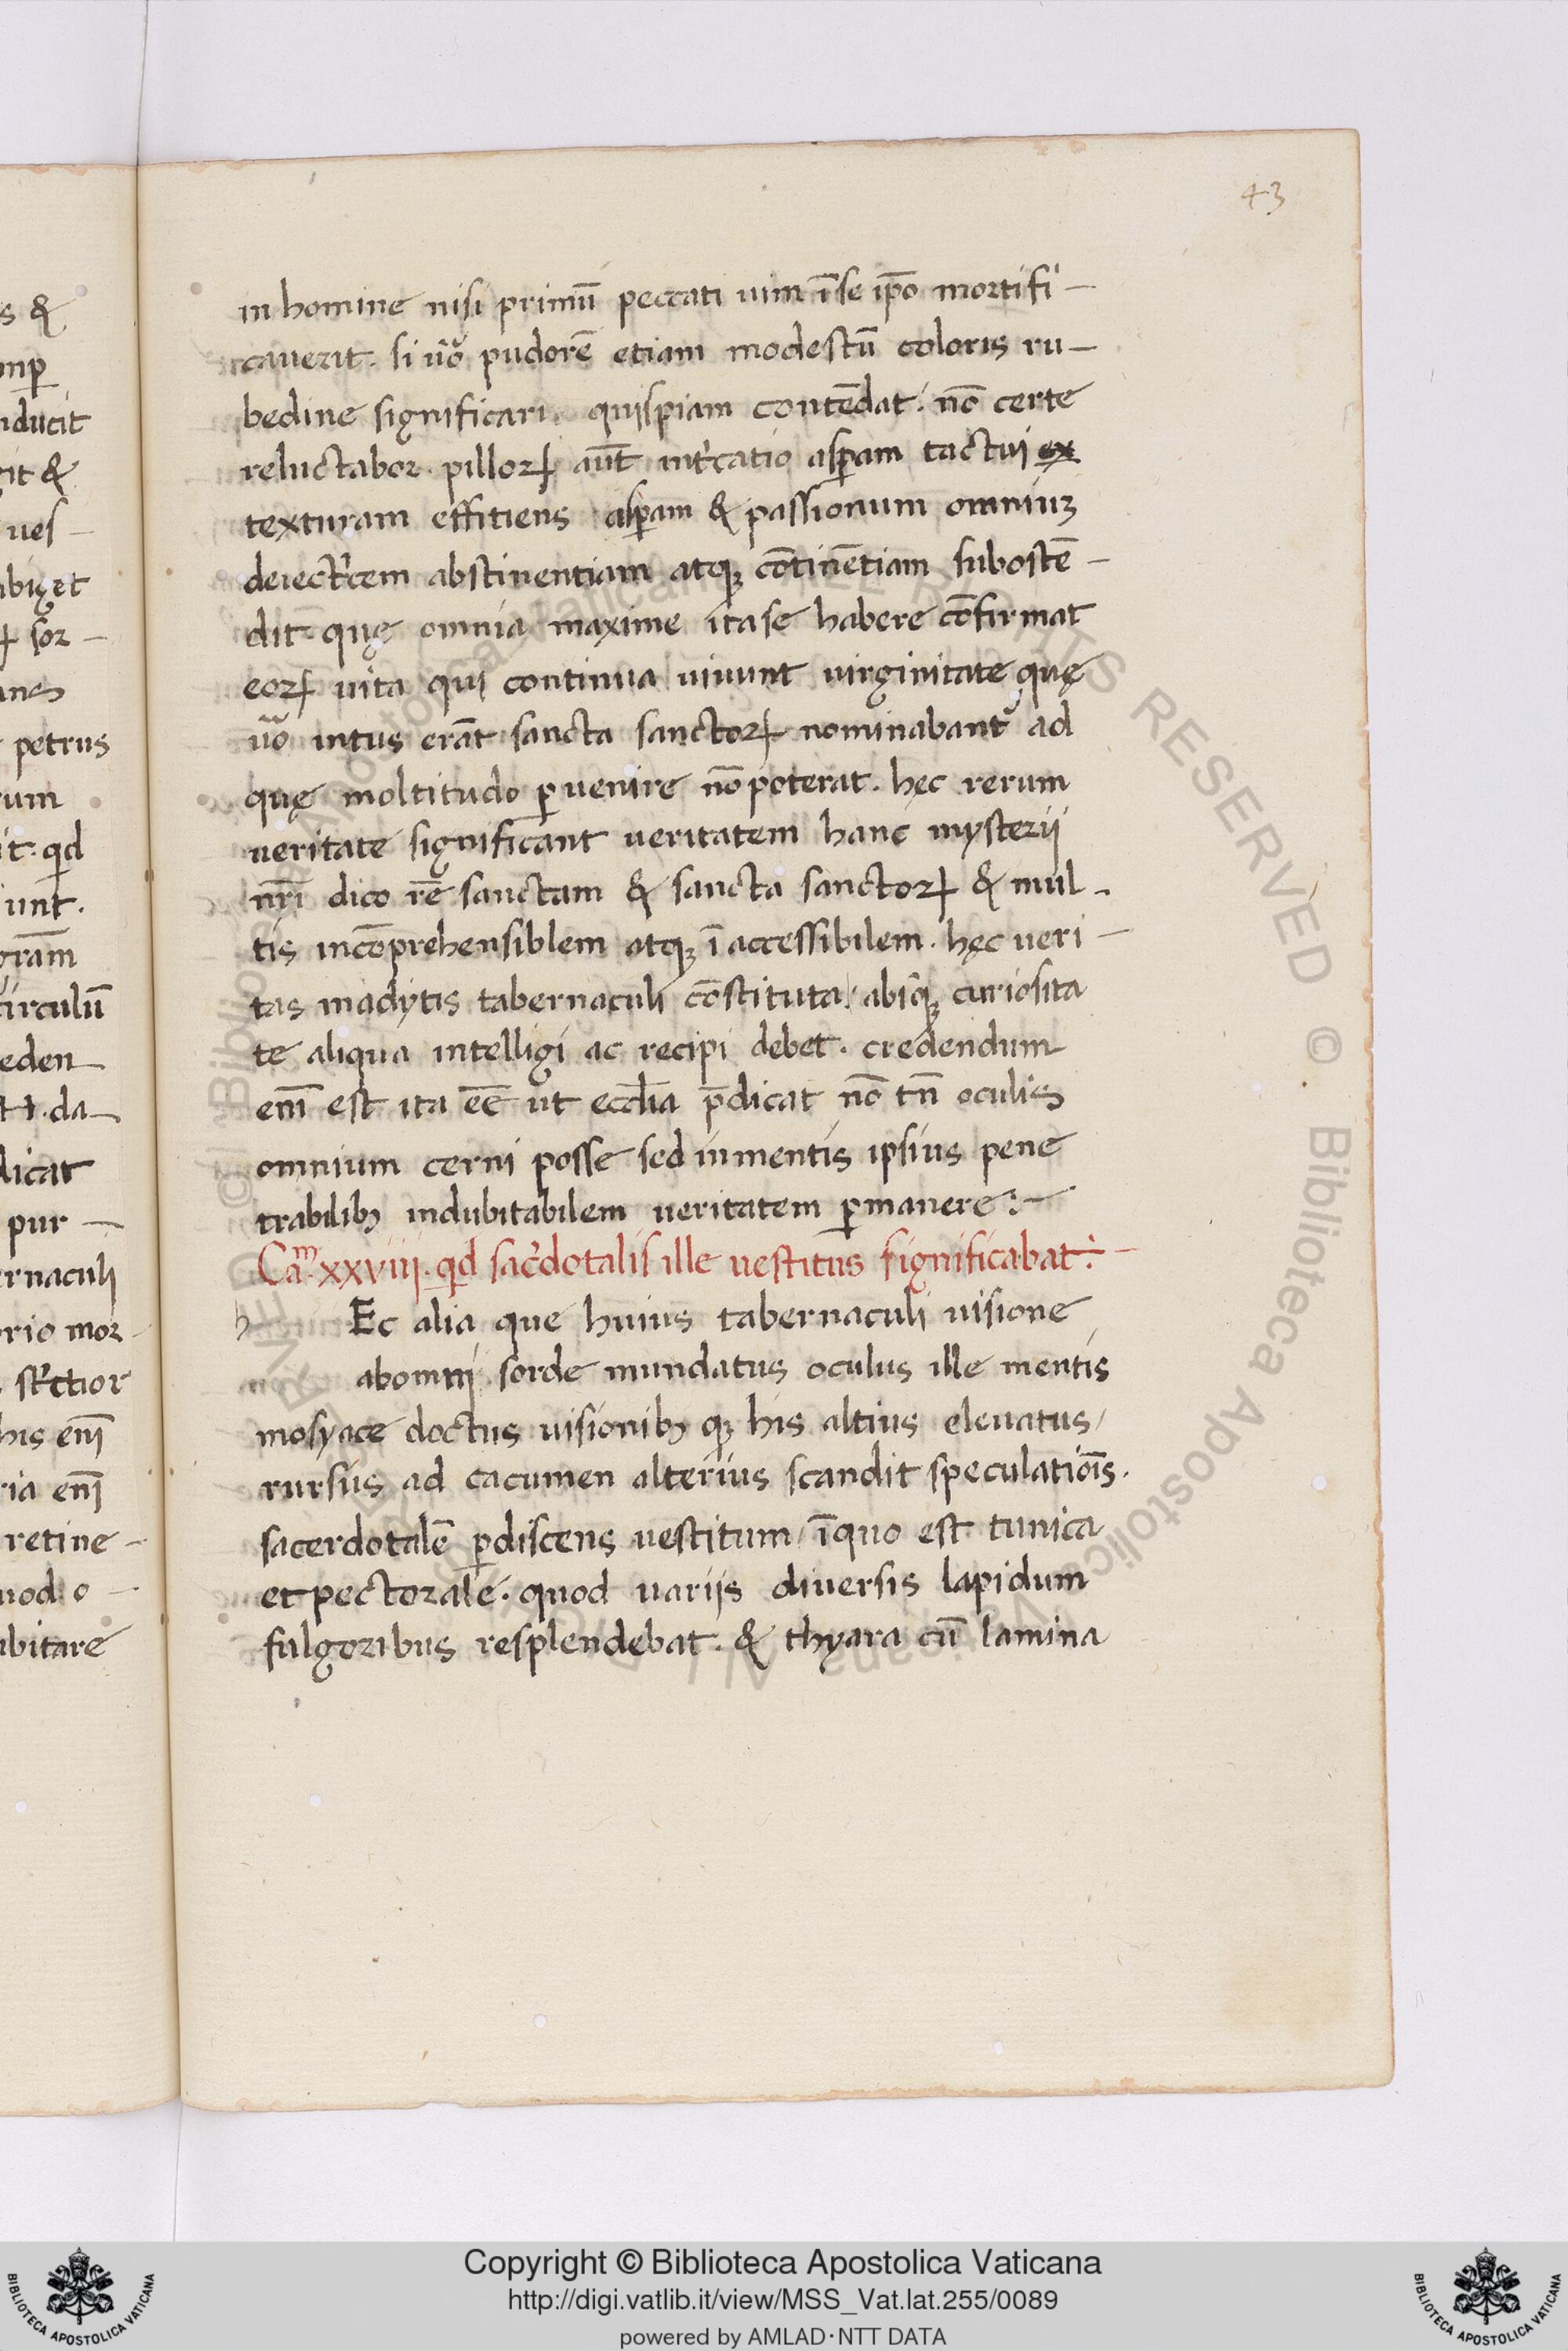 43
in homine nisi primū peccati uim ī se ip̄o mortifi-
cauerit. si ūo pudorē etiam modestū coloris ru-
bedine significari. quispiam contēdat. nō certe
reluctabor. pilloꝝ aūt intͥcatio asꝑam tactui
texturam effitiens asꝑam & passionum omniuꝫ
deiectͥcem abstinentiam atqꝫ cōtinētiam subostē-
dit. quę omnia maxime ita se habere cōfirmat
eoꝝ uita qui continua uiuunt uirginitate quę
ūo intus erāt sancta sanctoꝝ nominabant᷑ ad
quę moltitudo ꝑuenire nō poterat. hęc rerum
ueritate significant ueritatem hanc mysterij
nr̄i dico rē sanctam & sancta sanctoꝝ & mul-
tis incōprehensiblem atqꝫ īaccessibilem. hęc ueri-
tas inadytis tabernaculi cōstituta/ absqꝫ curiosita
te aliqua intelligi ac recipi debet. credendum
enī est ita eē ut eccl̄ia p̄dicat nō tn̄ oculis
omnium cerni posse sed in mentis ipsius pene
trabilibꝫ indubitabilem ueritatem ꝑmanere:-
Caᵐ. xxviii. qd sac̓dotalis ille uestitus significabat:-
h Ec alia que huius tabernaculi uisione
abomnij sorde mundatus oculus ille mentis
mosyace doctus uisionibꝫ qꝫ his altius eleuatus/
rursus ad cacumen alterius scandit speculatiōis.
sacerdotalē ꝑdiscens uestitum/ ī quo est tunica
et pectorale. quod uarijs diuersis lapidum
fulgoribus resplendebat. & thyara cū lamina
s &
ducit
it &
ues-
petrus
um
it. qd
unt.
circulū
eden-
da-
dicat
pur-
ernaculi
orio mor-
his enī
ria enī
retine-
uod o-
abitare
Copyright © Biblioteca Apostolica Vaticana
http://digi.vatlib.it/view/MSS_Vat.lat.255/0089
powered by AMLAD·NTT DATA
BIBLIOTECA APOSTOLICA VATICANA
BIBLIOTECA APOSTOLICA VATICANA